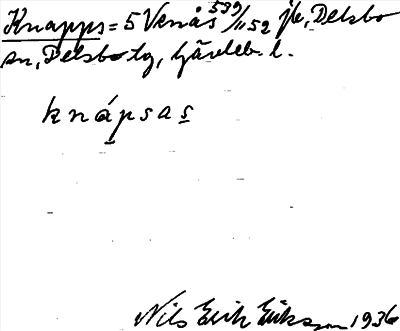 Knapps = 5 Venås 539/11 52 jb, Delsbo
sn, Delsbo tg, Gävleb. l.
knápsas
Nils Erik Eriksson 1936